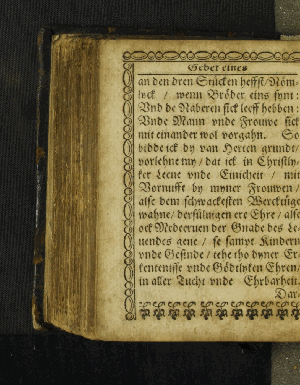 Gebet eines
an den dren Stücken heffst/ Nöm-
lyck / wenn Bröder eins synt:
Vnd de Naberen sick leeff hebben:
Vnde Mann vnde Frouwe sick
mit einander wol vorgahn. So
bidde ick dy van Herten grundt/
vorlehne my / dat ick in Christly-
ker Leene vnde Einicheit / mit
Vornufft by myner Frouwen /
alse dem schwackesten Wercktüge
wahne/ dersülnigen ere Ehre / alse
ock Mederuen der Gnade des Le-
uendes geue / se sampt Kindern
vnde Gesinde / tehe tho dyner Er-
kentenisse vnde Gödtlyken Ehren/
in aller Tucht vnde Ehrbarheit.
Dar-